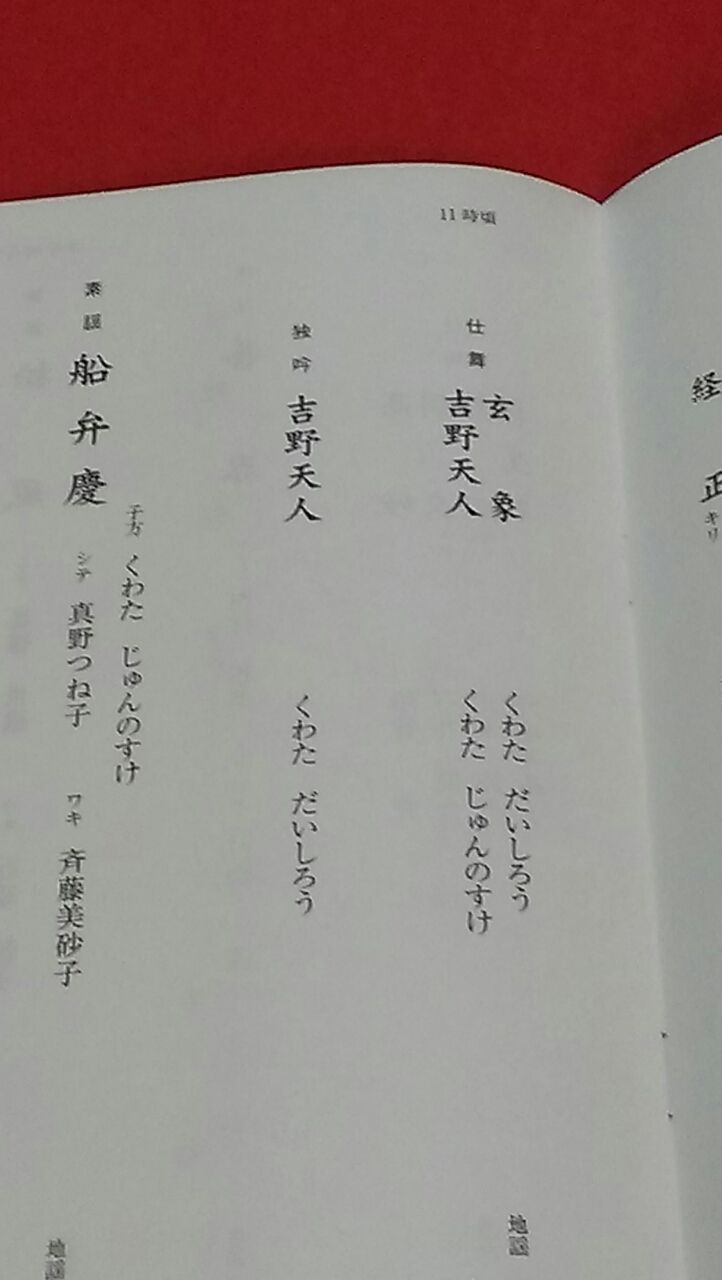 経正
キリ
11時頃
仕舞
玄象
くわた だいしろう
吉野天人
くわた じゅんのすけ
地謡
独吟
吉野天人
くわた だいしろう
素謡
船弁慶
子方 くわた じゅんのすけ
シテ 真野つね子
ワキ 斉藤美砂子
地謡